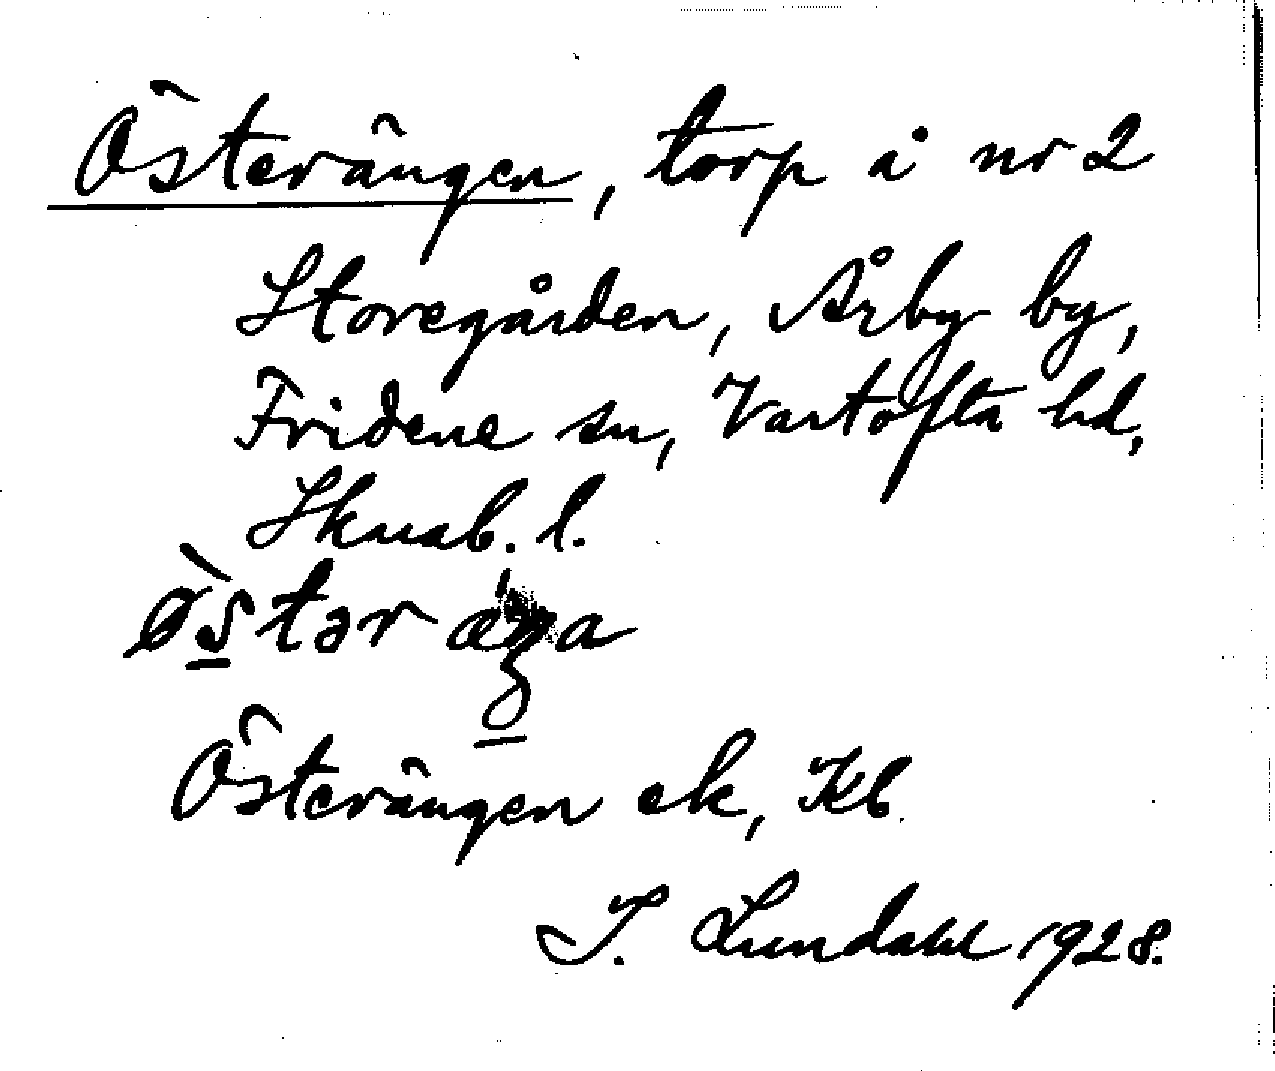 Österängen, torp å nr 2
Storegården, Årby by,
Fridene sn, Vartofta hd,
Skarab. l.
Österängen ek, Kb.
I. Lundahl 1928.